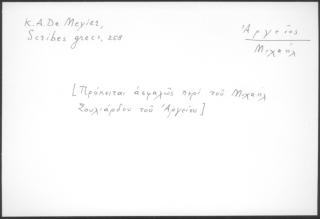 K.A. De Meyier,
Scribes grecs, 258
Ἀργεῖος
Μιχαήλ
[Πρόκειται ἀσφαλῶς περί τοῦ Μιχαήλ
Σουλιάρδου τοῦ Ἀργείου]